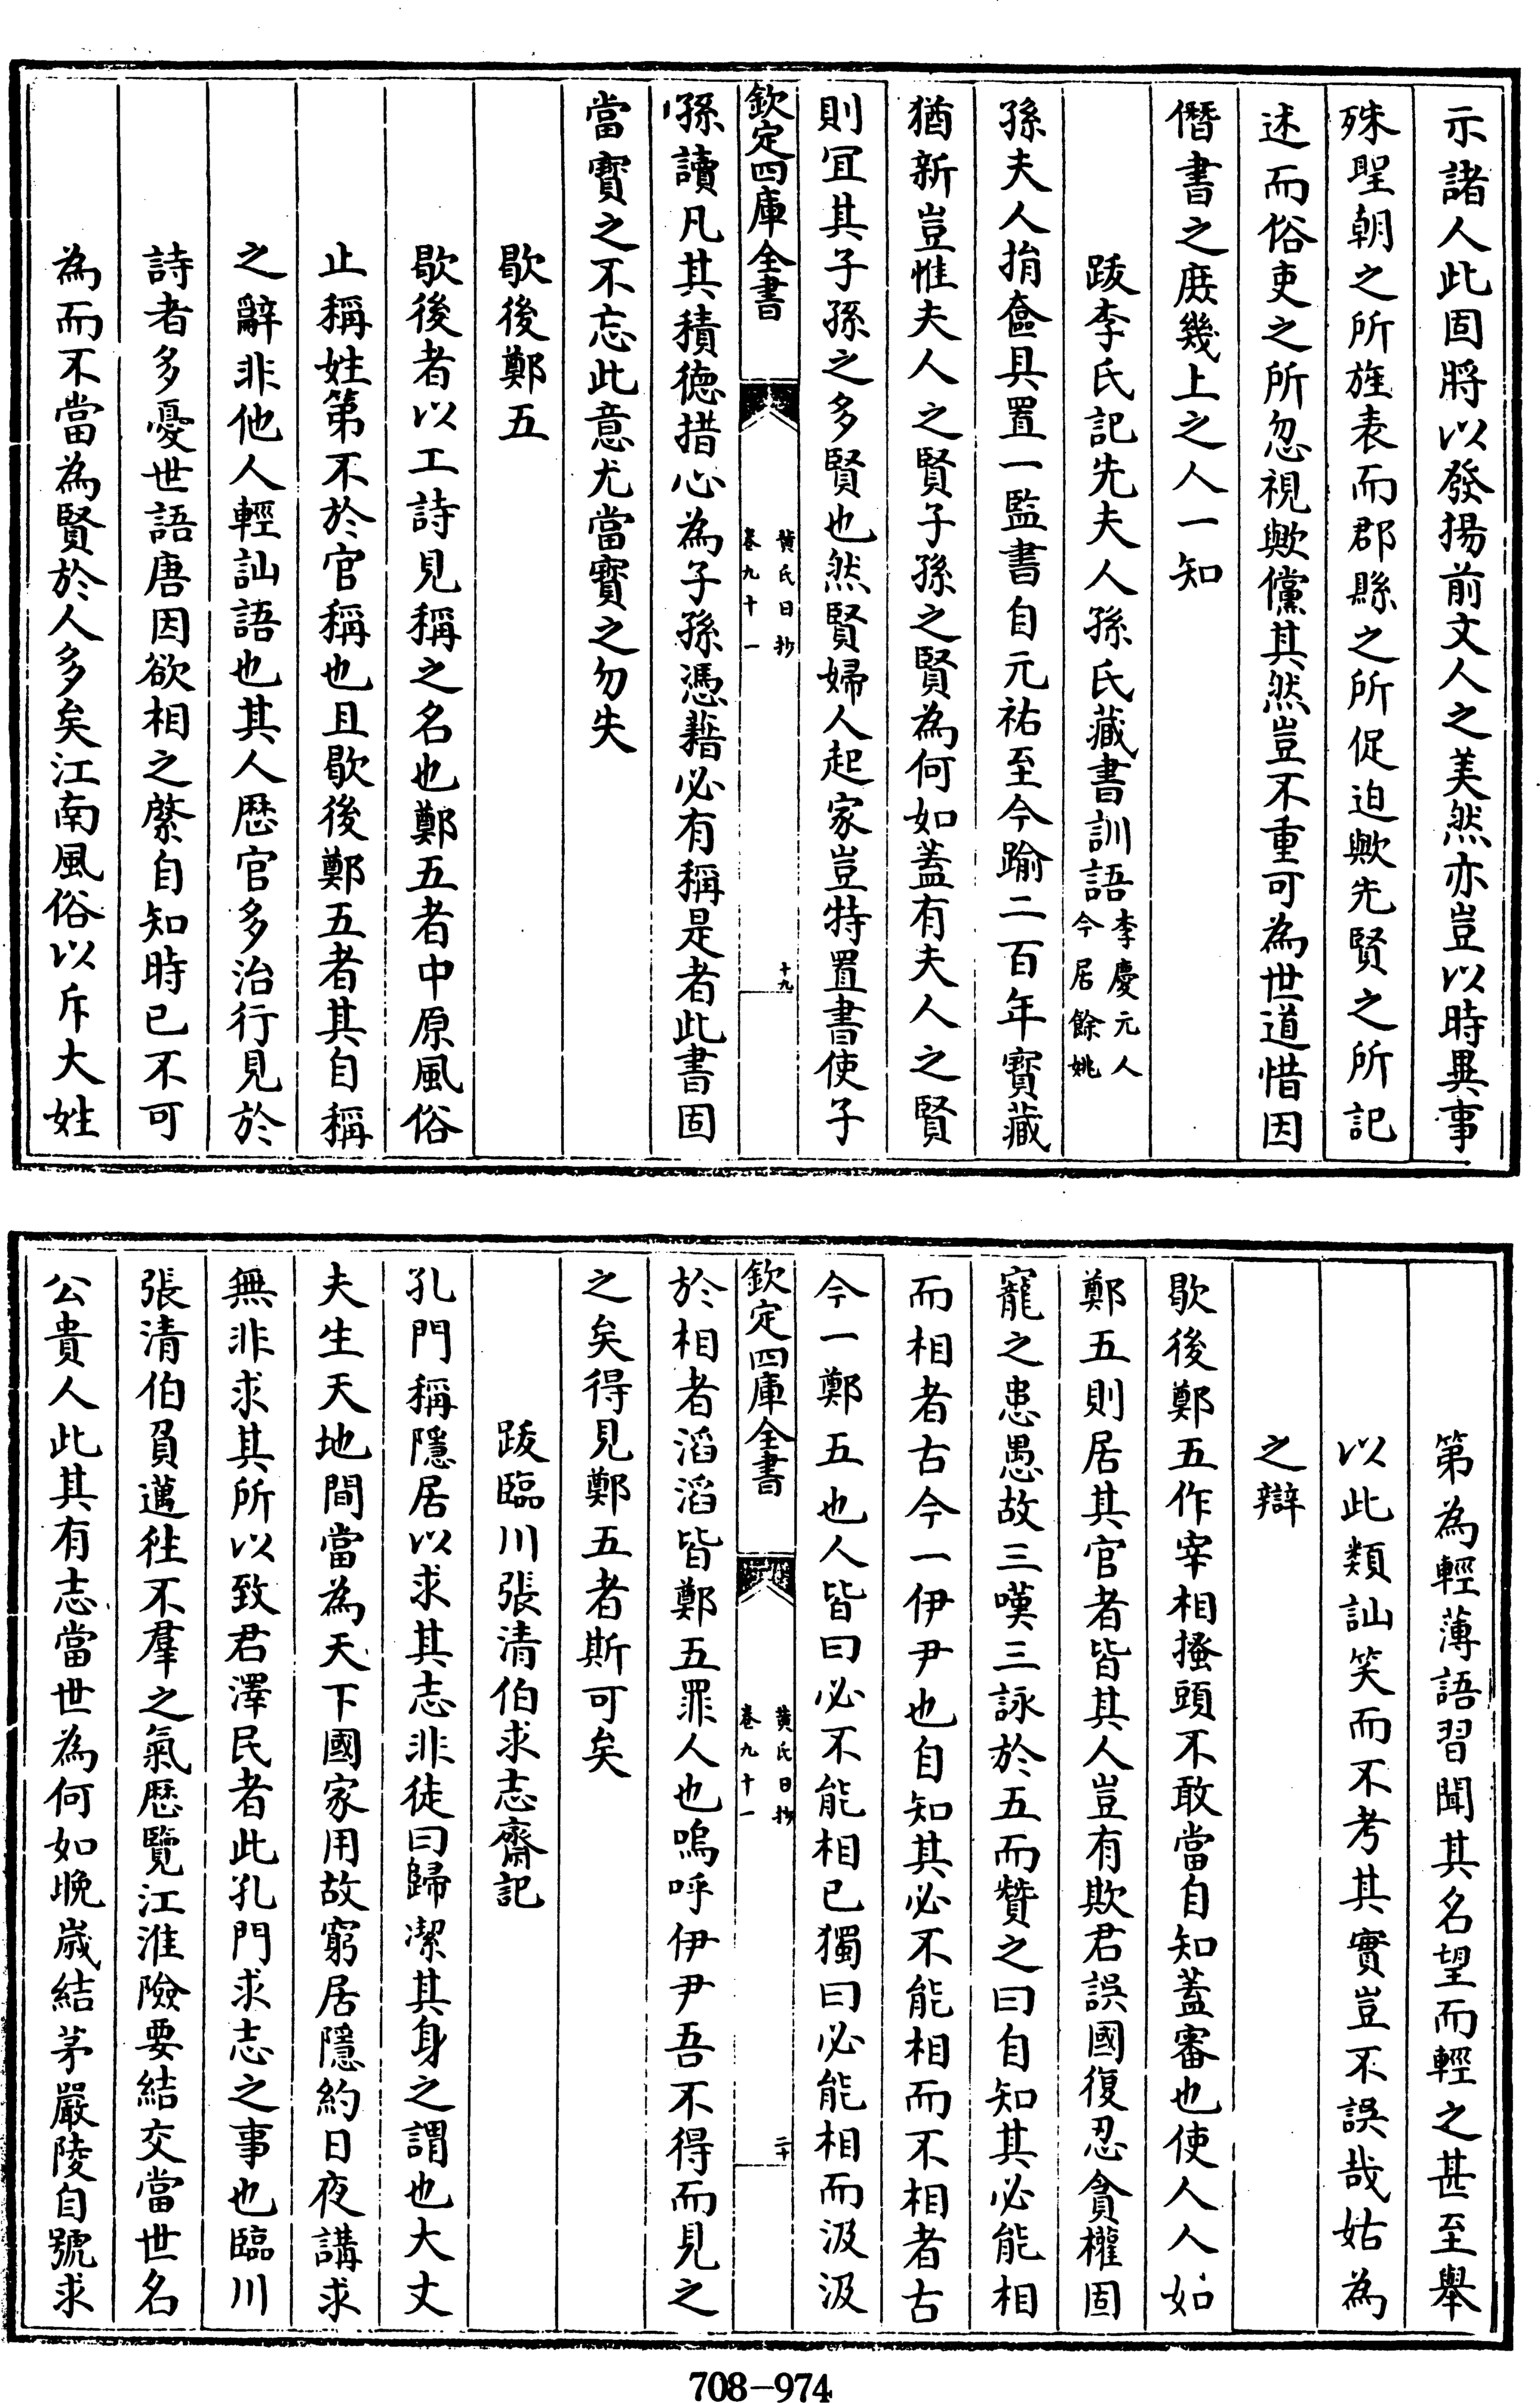 示諸人此固將以發揚前文人之美然亦豈以時異事
殊聖朝之所旌表而郡縣之所促迫歟先賢之所記
述而俗吏之所忽視歟儻其然豈不重可為世道惜因
僭書之庻幾上之人一知
跋李氏記先夫人孫氏藏書訓語李慶元人今居餘姚
孫夫人捐奩具置一監書自元祐至今踰二百年寳藏
猶新豈惟夫人之賢子孫之賢為何如蓋有夫人之賢
則冝其子孫之多賢也然賢婦人起家豈特置書使子
欽定四庫全書
黄氏日抄
卷九十一
十九
孫讀凡其積徳措心為子孫憑藉必有稱是者此書固
當寳之不忘此意尤當寳之勿失
歇後鄭五
歇後者以工詩見稱之名也鄭五者中原風俗
止稱姓第不於官稱也且歇後鄭五者其自稱
之辭非他人輕訕語也其人歴官多治行見於
詩者多憂世語唐因欲相之綮自知時已不可
為而不當為賢於人多矣江南風俗以斥大姓
第為輕薄語習聞其名望而輕之甚至舉
以此類訕笑而不考其實豈不誤哉姑為
之辯
歇後鄭五作宰相搔頭不敢當自知蓋審也使人人如
鄭五則居其官者皆其人豈有欺君誤國復忍貪權固
寵之患愚故三嘆三詠於五而賛之曰自知其必能相
而相者古今一伊尹也自知其必不能相而不相者古
今一鄭五也人皆曰必不能相已獨曰必能相而汲汲
欽定四庫全書
黄氏日抄
卷九十一
二十
於相者滔滔皆鄭五罪人也嗚呼伊尹吾不得而見之
之矣得見鄭五者斯可矣
跋臨川張清伯求志齋記
孔門稱隱居以求其志非徒曰歸潔其身之謂也大丈
夫生天地間當為天下國家用故窮居隱約日夜講求
無非求其所以致君澤民者此孔門求志之事也臨川
張清伯負邁徃不羣之氣歴覽江淮險要結交當世名
公貴人此其有志當世為何如晚嵗結茅嚴陵自號求
708-974